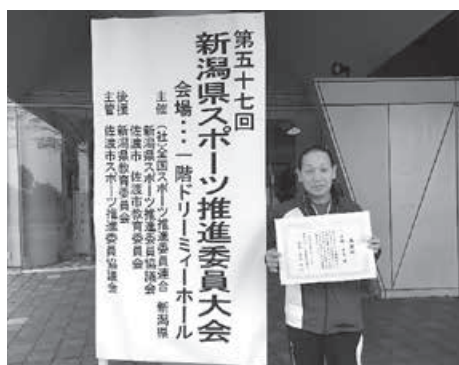 第五十七回
新潟県スポーツ推進委員大会
会場･･･一階ドリーミィーホール
主催 (社)全国スポーツ推進委員連合 新潟県
新潟県スポーツ推進委員協議会
佐渡市 佐渡市教育委員会
後援 新潟県教育委員会
主管 佐渡市スポーツ推進委員協議会